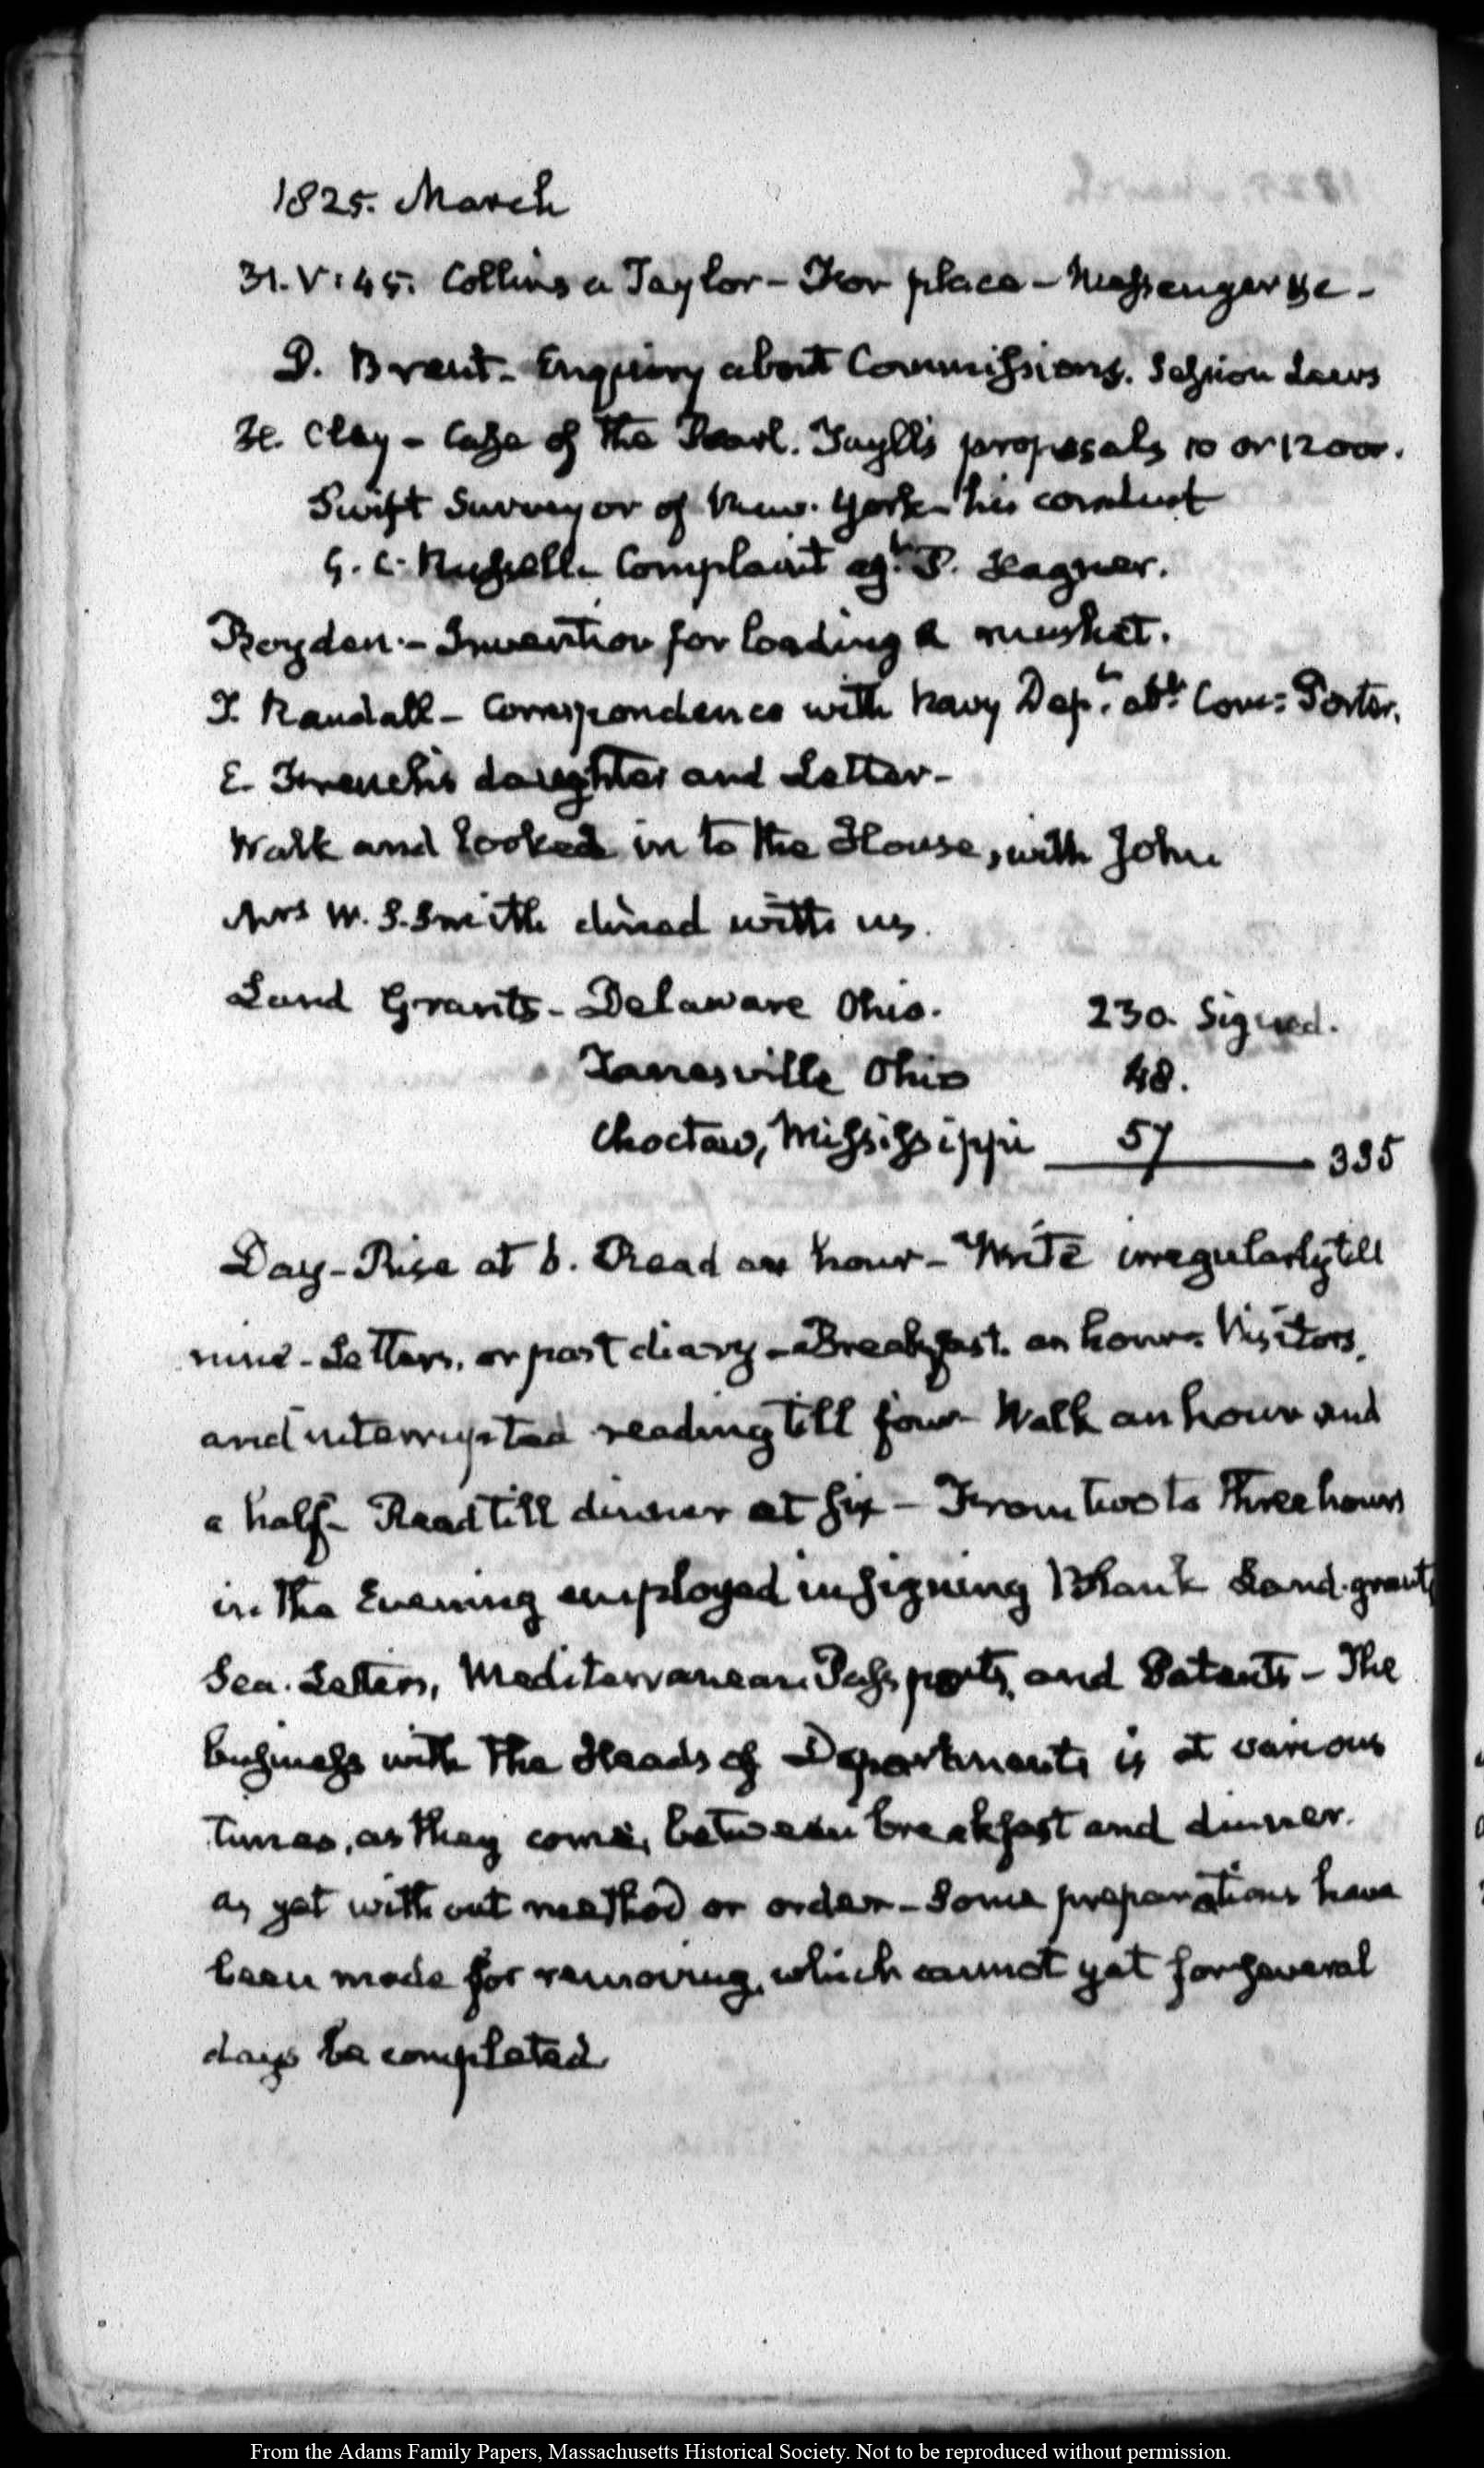 1825. March
31. V:45. Collins a Taylor - For place - Messenger &c -
D. Brent - Enquiry about Commissions. Session Laws
H. Clay - Case of the Pearl. Tayll's proposals 10 or 1200.
Swift Surveyor of New-York - his conduct
G. C. Russell - Complaint agt. P. Hagner.
Boyden - Invention for loading a musket.
T. Randall - Correspondence with Navy Dept. abt. Comr: Porter.
E. French's daughter and Letter -
Walk and looked in to the House, with John
Mrs W. S. Smith dined with us.
Land Grants - Delaware Ohio. 230. Signed.
Zanesville Ohio 48.
Choctaw, Mississippi 57 335
Day - Rise at 6. Read an hour - Write irregularly till
nine - Letters, or past diary - Breakfast. an hour - Visitors,
and interrupted reading till four - Walk an hour and
a half - Read till dinner at six - From two to three hours
in the Evening employed in signing Blank Land-grants
Sea-Letters, Mediterranean Passports, and Patents - The
business with the Heads of Departments is at various
times, as they come, between breakfast and dinner.
as yet without method or order - Some preparations have
been made for removing, which cannot yet for several
days be completed
From the Adams Family Papers, Massachusetts Historical Society. Not to be reproduced without permission.